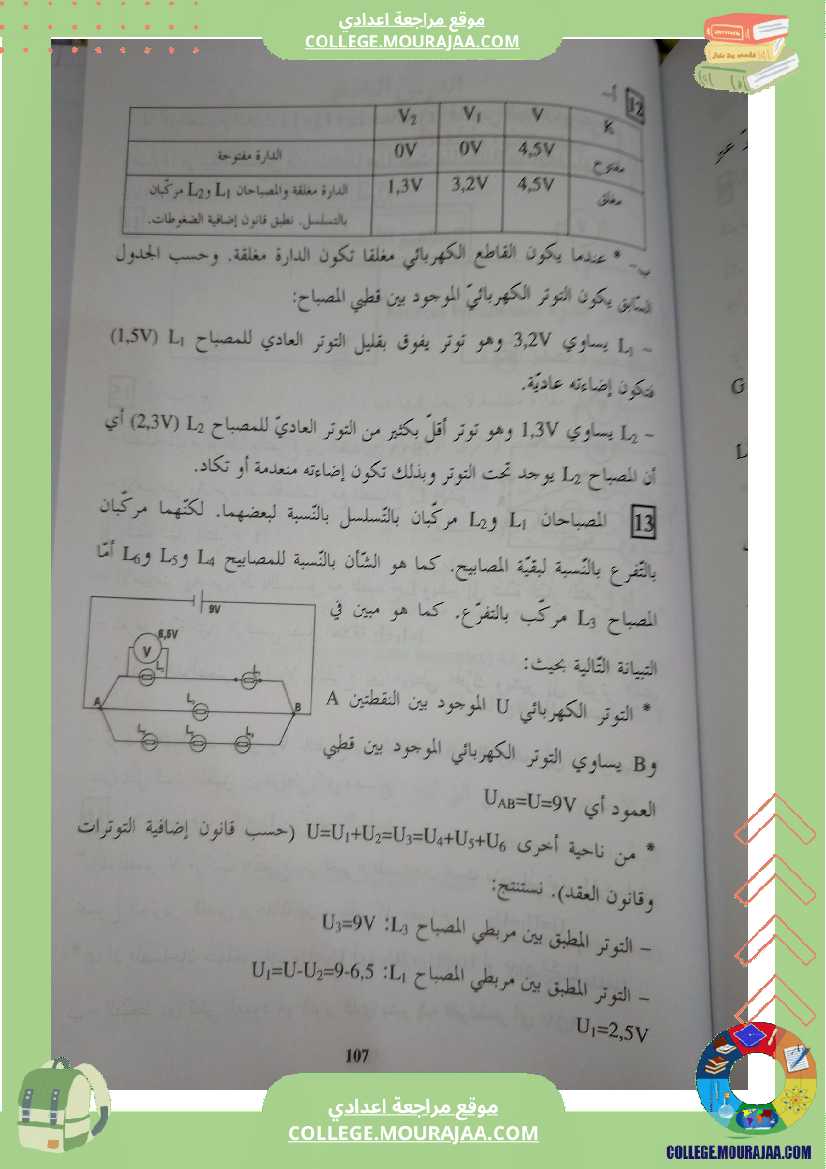 موقع مراجعة اعدادي
COLLEGE.MOURAJAA.COM
12 أ-
K V V1 V2
مفتوح 4,5V 0V 0V الدارة مفتوحة
مغلق 4,5V 3,2V 1,3V الدارة مغلقة والمصباحان L1 وL2 مركّبان
بالتسلسل. نطبق قانون إضافية الضغوطات.
ب- * عندما يكون القاطع الكهربائي مغلقا تكون الدارة مغلقة. وحسب الجدول
السّابق يكون التوتر الكهربائيّ الموجود بين قطبي المصباح:
– L1 يساوي 3,2V وهو توتر يفوق بقليل التوتر العادي للمصباح L1 (1,5V)
فتكون إضاءته عاديّة.
– L2 يساوي 1,3V وهو توتر أقلّ بكثير من التوتر العاديّ للمصباح L2 (2,3V) أي
أن المصباح L2 يوجد تحت التوتر وبذلك تكون إضاءته منعدمة أو تكاد.
13 المصباحان L1 وL2 مركّبان بالتّسلسل بالنّسبة لبعضهما. لكنّهما مركّبان
بالتّفرع بالنّسبة لبقيّة المصابيح. كما هو الشّأن بالنّسبة للمصابيح L4 وL5 وL6 أمّا
المصباح L3 مركّب بالتفرّع. كما هو مبين في
التبيانة التّالية بحيث:
* التوتر الكهربائي U الموجود بين النقطتين A
وB يساوي التوتر الكهربائي الموجود بين قطبي
العمود أي UAB=U=9V
9V
6,5V
V
A
B
* من ناحية أخرى U=U1+U2=U3=U4+U5+U6 (حسب قانون إضافية التوترات
وقانون العقد). نستنتج:
– التوتر المطبق بين مربطي المصباح L3: U3=9V
– التوتر المطبق بين مربطي المصباح L1: U1=U-U2=9-6,5
U1=2,5V
107
موقع مراجعة اعدادي
COLLEGE.MOURAJAA.COM
COLLEGE.MOURAJAA.COM